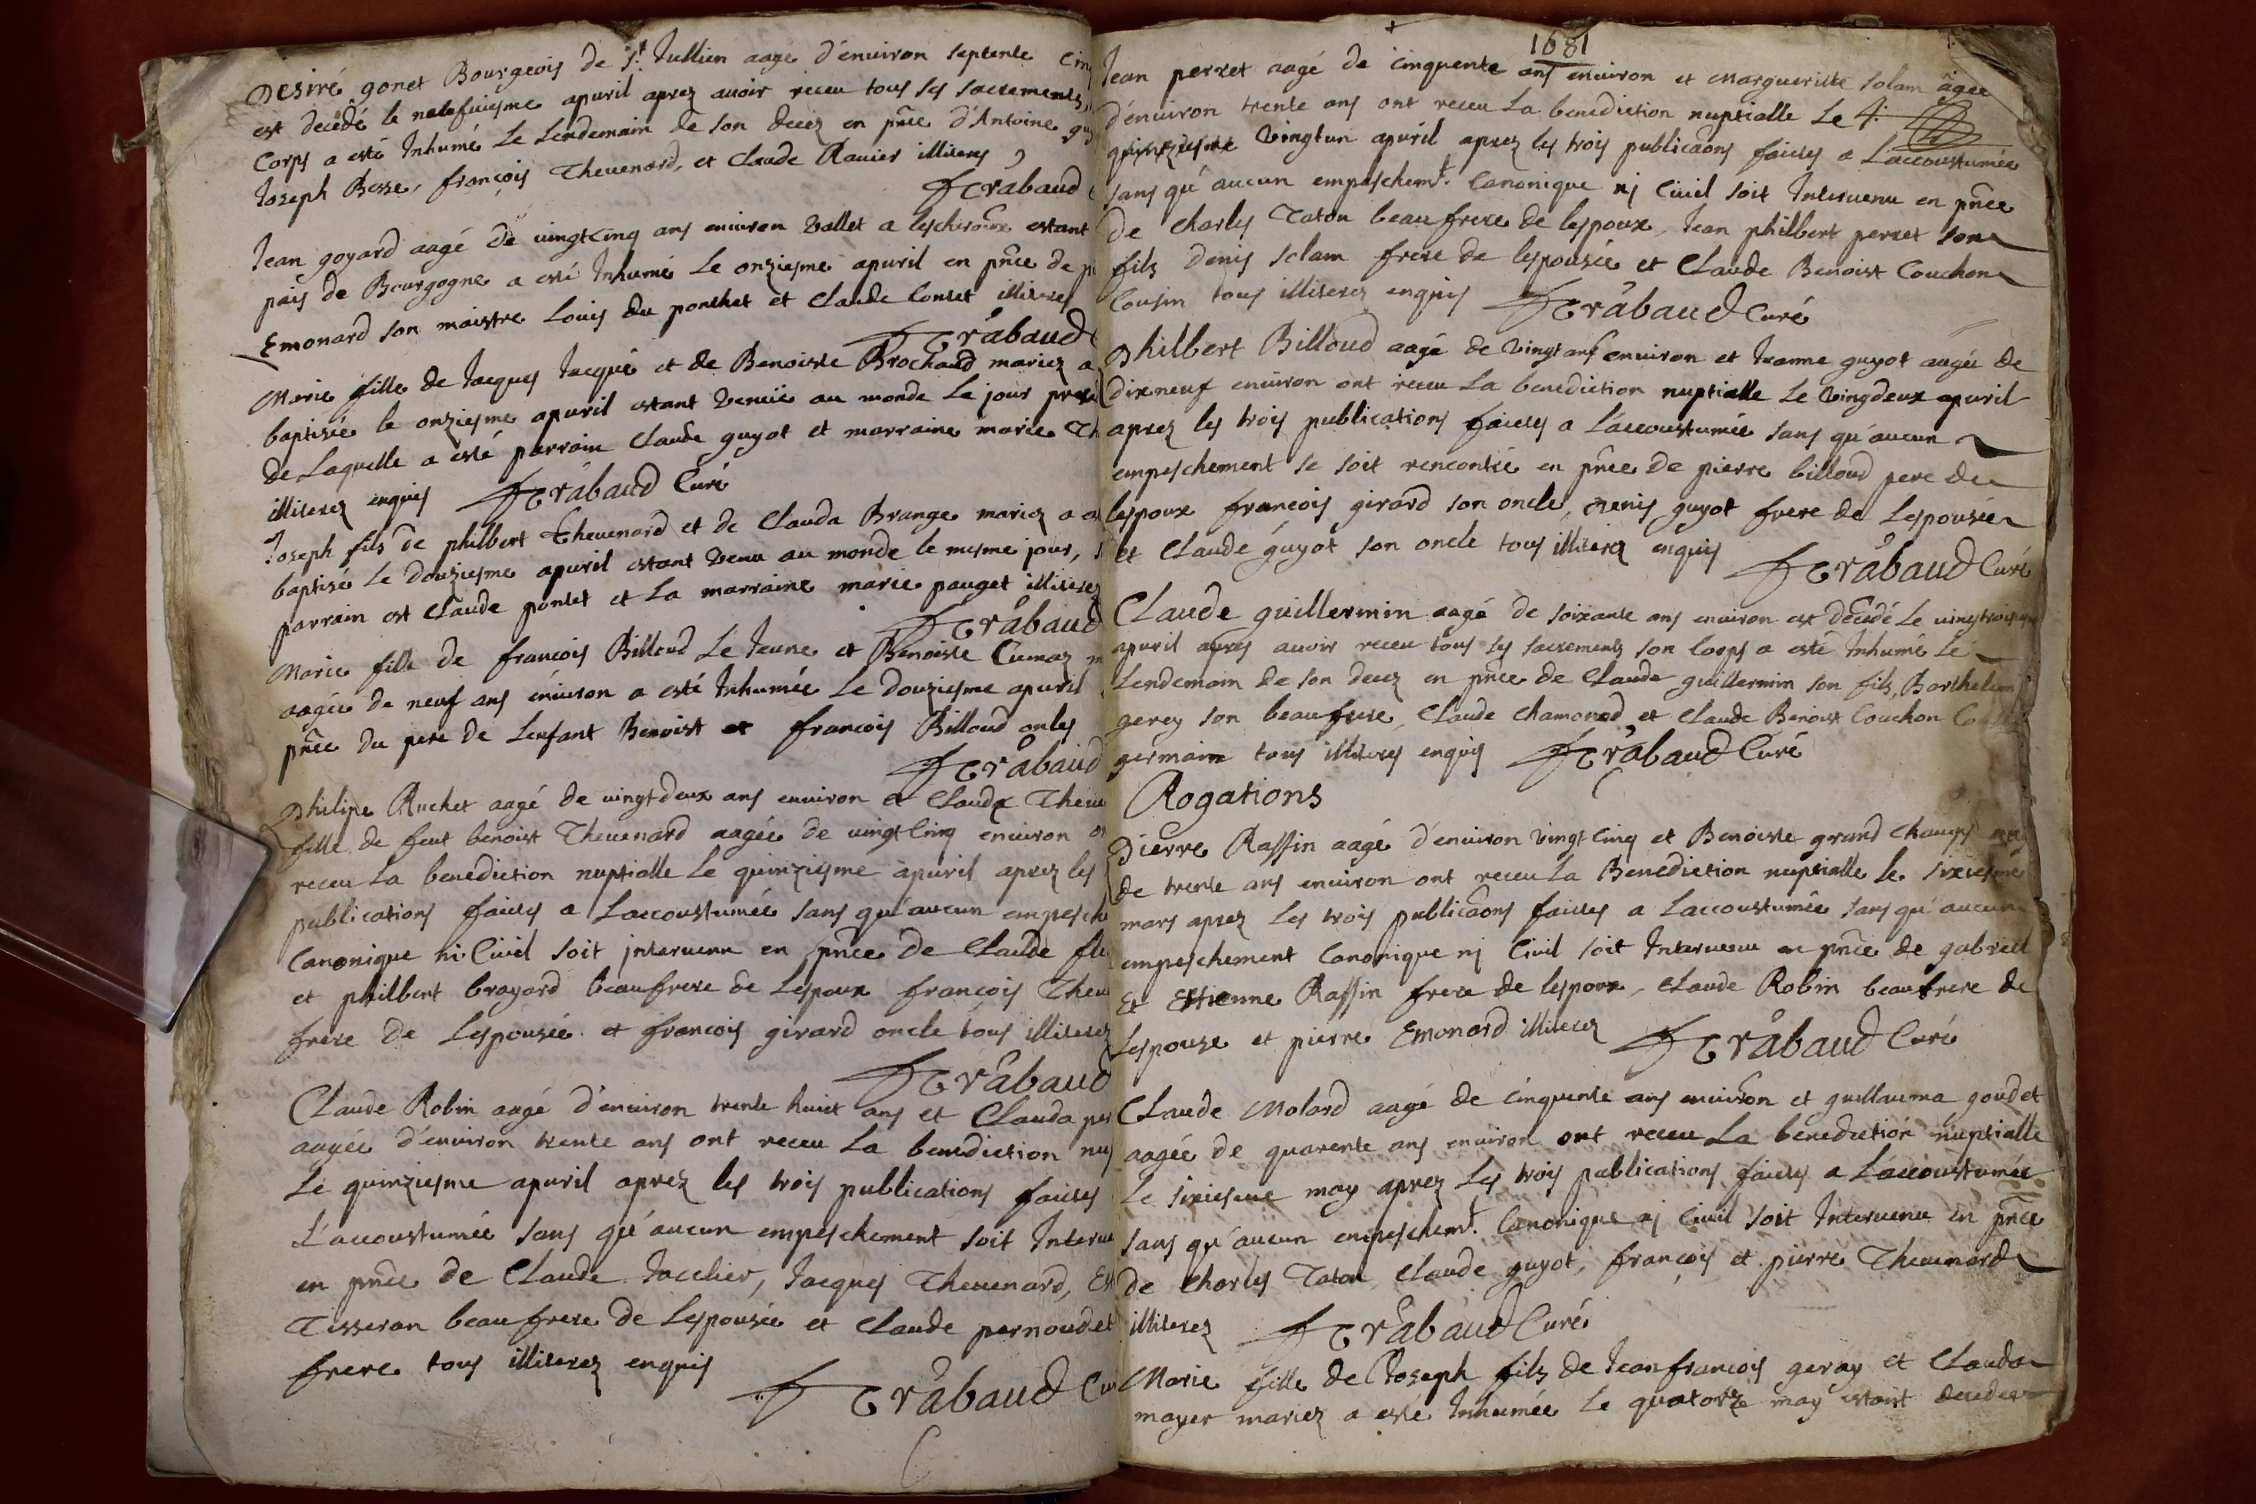 Desiré gonet Bourgeois de St. Jullien aage d'enuiron septente Cin
est decedé le apuril aprez auoir receu tous ses sacrements,
Corps a esté Inhumé Le Lendemain de son decez en pnce d'Antoine
Joseph Besse, françois Theuenard, et Claude Rauier illiteres
Trabaud
Jean goyard aagé de uingtcinq ans enuiron Vallet a estant
païs de Bourgogne a esté Inhumé Le onziesme apuril en pnce de
Emonard son maistre Louis du ponthet et Claude Contet illiteres
Trabaud
Marie fille de Jacques Jacqué et de Benoiste Brochand mariez a
baptisée le onziesme apuril estant Venüe au monde Le jour
de Laquelle a esté parrain Claude guyot et marraine marie Th
illiterez enquis Trabaud Curé
Joseph fils de philbert Theuenard et de Clauda Brange mariez a
baptisé Le douziesme apuril estant Venu au monde le mesme jour,
parrain est Claude pontet et La marraine marie pauget illiterez
Trabaud
Marie fille de francois Billoud Le Jeune et Benoiste Cumaz
aagée de neuf ans enuiron a esté Inhumée Le douziesme apuril
pnce du pere de Lenfant Benoist et francois Billoud onles
Trabaud
Philipe Ruchet aagé de uingtdeux ans enuiron et Clauda Theue
fille de feut benoist Theuenard aagée de uingtcinq enuiron
receu La benediction nuptialle Le quinziesme apuril aprez les
publications faictes a Laccoustumée sans qu'aucun empesch
Canonique ni Ciuil soit interuenu en pnce de Claude
et philbert brayard beaufrere de Lespoux francois Theu
frere de Lespousée et francois girard oncle tous illiterez
Trabaud
Claude Robin aagé d'enuiron trente huict ans et Clauda per
aagée d'enuiron trente ans ont receu La benediction nup
Le quinziesme apuril aprez les trois publications faictes
L'accoustumée sans qu'aucun empeschement soit Interue
en pnce de Claude Jacelier, Jacques Theuenard,
Tisseran beaufrere de Lespousée et Claude pernoudet
frere tous illiterez enquis
Trabaud Cu
1681
Jean perret aagé de cinquente ans enuiron et Marguerite solam agée
d'enuiron trente ans ont receu La benediction nuptialle Le
quinziesme Vingtun apuril aprez les trois publicaons faictes a Laccoustumée
sans qu'aucun empeschemt. Canonique nj Ciuil soit Interuenu en pnce
de Charles Taton beaufrere de lespoux, Jean philbert perret son
fils denis solam frere de lespousée et Claude Benoist Couchon
Cousin tous illiterez enquis Trabaud Curé
Philbert Billoud aagé de Vingt ans enuiron et Jeanne guyot aagée de
dixneuf enuiron ont receu La benediction nuptialle Le Vingdeux apuril
aprez les trois publications faictes a L'accoustumée sans qu'aucun
empeschement se soit rencontré en pnce de pierre billoud pere de
lespoux francois girard son oncle, denis guyot frere de Lespousée
et Claude guyot son oncle tous illiterez enquis Trabaud Curé
Claude guillermin aagé de soixante ans enuiron est decedé Le
apuril apres auoir receu tous ses sacrements son Corps a esté Inhumé Le
Lendemain de son decez en pnce de Claude guillermin son fils, Barthelem
gerey son beaufrere, Claude Chamonad et Claude Benoist Couchon
germain tous illiteres enquis Trabaud Curé
Rogations
Pierre Raffin aagé d'enuiron Vingt Cinq et Benoiste grand Champs
de trente ans enuiron ont receu La Benediction nuptialle le sixiesme
mars aprez Les trois publicaons faictes a Laccoustumée sans qu'aucun
empeschement Canonique nj Ciuil soit Interuenu en pnce de gabriel
Et Estienne Raffin frere de lespoux, Claude Robin beaufrere de
Lespouze et pierre Emonard illiterez Trabaud Curé
Claude Molard aagé de cinquente ans enuiron et guillauma goudet
aagée de quarente ans enuiron ont receu La benediction nuptialle
Le sixiesme may aprez Les trois publications faictes a Laccoustumée
sans qu'aucun empeschemt. Canonique nj Ciuil soit Interuenu en pnce
de Charles Taton Claude guyot, françois et pierre Theuenard
illiterez Trabaud Curé
Marie fille de Joseph fils de Jeanfrancois geray et Clauda
mayer mariez a esté Inhumée Le quatorze may estant decedee